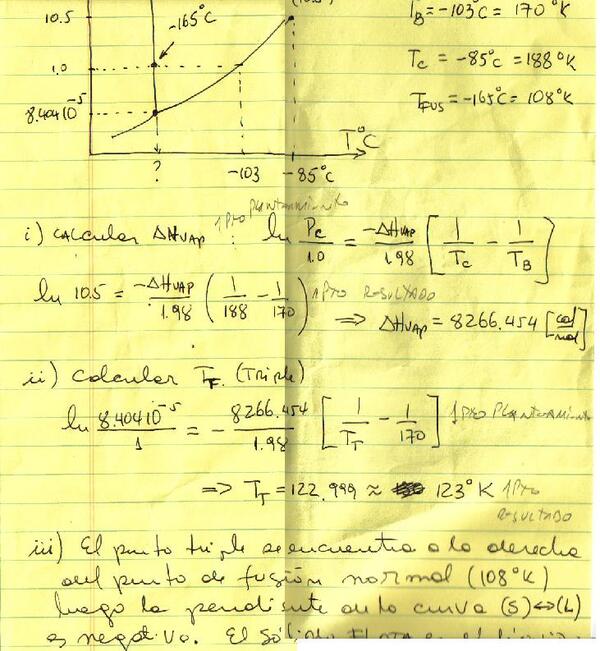 10.5
-165°C
1.0
8.404 10⁻⁵
T°C
? -103 -85°C
T_B = -103°C = 170°K
T_C = -85°C = 188°K
T_FUS = -165°C = 108°K
1 Pto Planteamiento
i) CALCULAR ΔHVAP : ln P_C/1.0 = -ΔHVAP/1.98 [ 1/T_C - 1/T_B ]
ln 10.5 = -ΔHVAP/1.98 ( 1/188 - 1/170 ) 1 PTO RESULTADO
⇒ ΔHVAP = 8266.454 [cal/mol]
ii) Calcular T_T. (Triple)
ln 8.404 10⁻⁵/1 = - 8266.454/1.98 [ 1/T_T - 1/170 ] 1 PTO Planteamiento
⇒ T_T = 122.999 ≈ 123°K 1 Pto
RESULTADO
iii) El punto triple se encuentra a la derecha
del punto de fusión normal (108°K)
luego la pendiente de la curva (S)↔(L)
es negativa. El Sólido Flota en el líquido